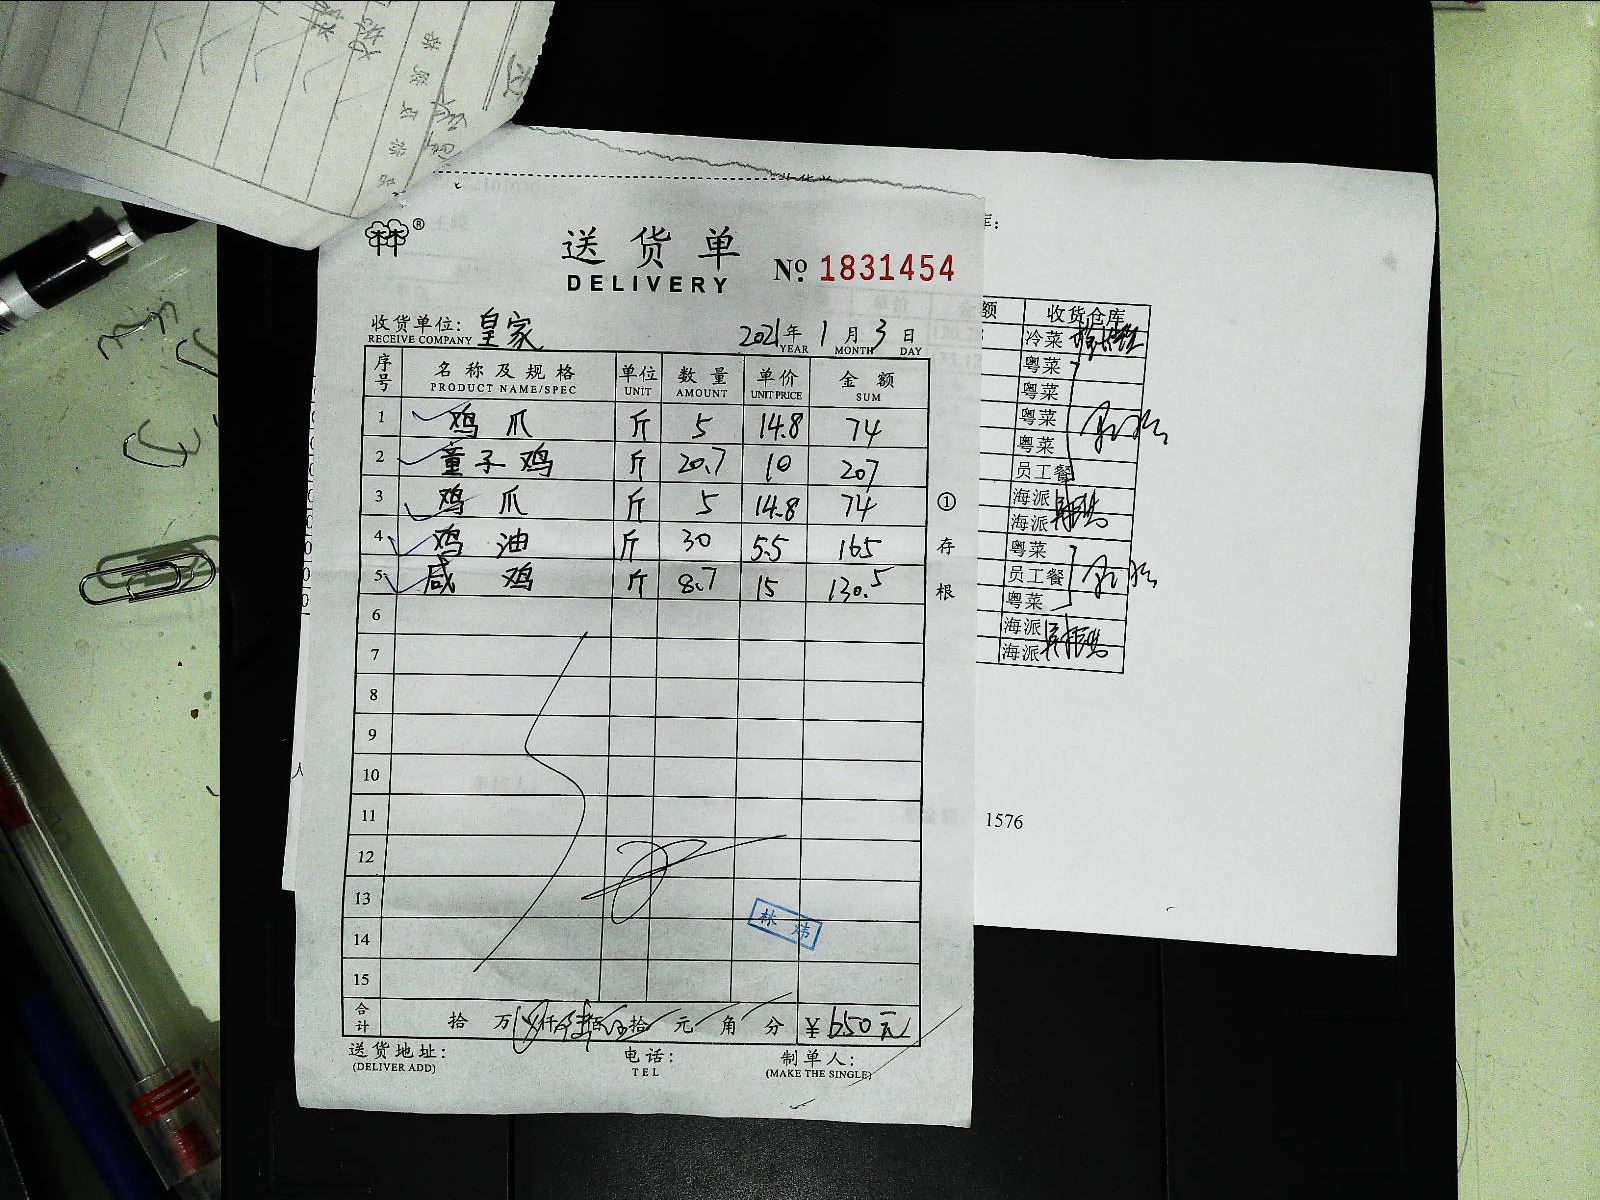 送货单
DELIVERY
№ 1831454
收货单位: 皇家 2021年1月3日
RECEIVE COMPANY YEAR MONTH DAY
序号 名称及规格 单位 数量 单价 金额
PRODUCT NAME/SPEC UNIT AMOUNT UNIT PRICE SUM
1 鸡爪 斤 5 14.8 74
2 童子鸡 斤 20.7 10 207
3 鸡爪 斤 5 14.8 74
4 鸡油 斤 30 5.5 165
5 咸鸡 斤 8.7 15 130.5
6
7
8
9
10
11
12
13
14
15
林炜
合计 拾 万 仟 陆佰 伍拾 元 角 分 ¥650元
送货地址: 电话: 制单人:
(DELIVER ADD) TEL (MAKE THE SINGLE)
①存根
库:
额 收货仓库
冷菜
粤菜
粤菜
粤菜
粤菜
员工餐
海派
海派
粤菜
员工餐
粤菜
海派
海派
1576